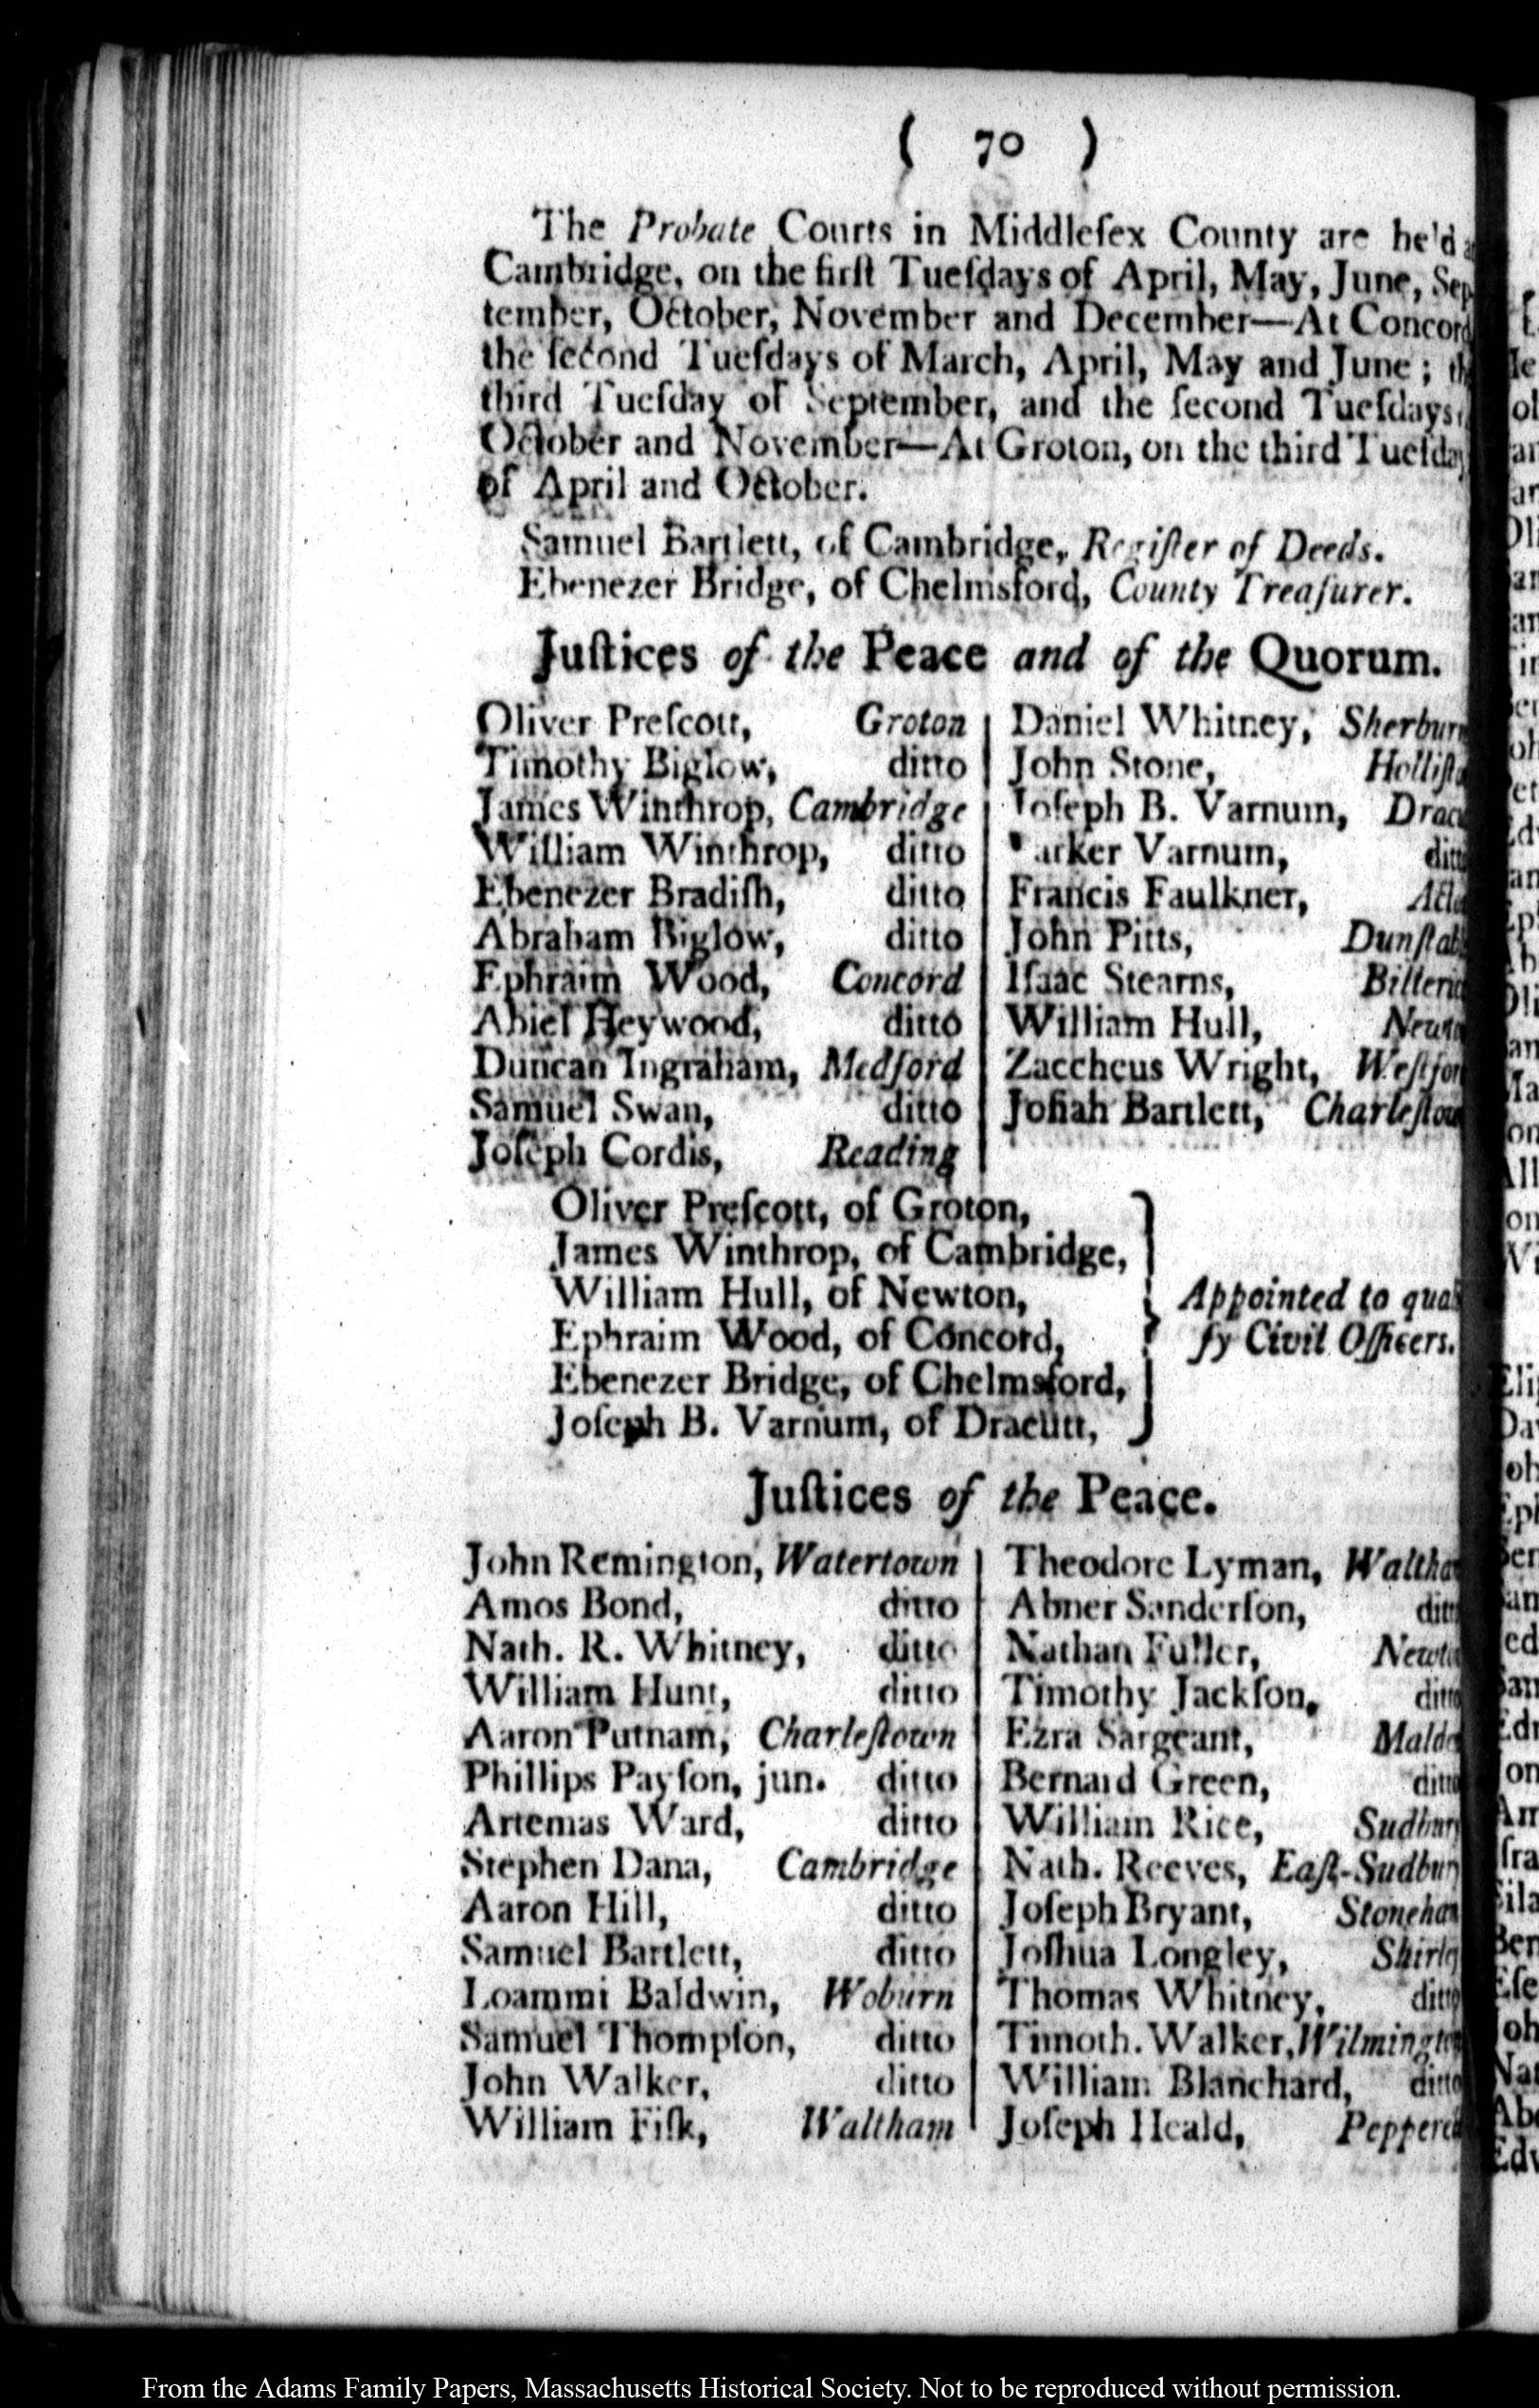 ( 70 )
The Probate Courts in Middleſex County are he'd
Cambridge, on the firſt Tueſdays of April, May, June, Sep
tember, October, November and December—At Concord
the ſecond Tueſdays of March, April, May and June; th
third Tueſday of September, and the ſecond Tueſdays
October and November—At Groton, on the third Tueſday
of April and October.
Samuel Bartlett, of Cambridge, Regiſter of Deeds.
Ebenezer Bridge, of Chelmsford, County Treaſurer.
Juſtices of the Peace and of the Quorum.
Oliver Preſcott, Groton
Timothy Biglow, ditto
James Winthrop, Cambridge
William Winthrop, ditto
Ebenezer Bradiſh, ditto
Abraham Biglow, ditto
Ephraim Wood, Concord
Abiel Heywood, ditto
Duncan Ingraham, Medford
Samuel Swan, ditto
Joſeph Cordis, Reading
Daniel Whitney, Sherburn
John Stone, Holliſt
Joſeph B. Varnum, Dracu
Parker Varnum, ditt
Francis Faulkner, Act
John Pitts, Dunſtab
Iſaac Stearns, Billeric
William Hull, Newto
Zaccheus Wright, Weſtfor
Joſiah Bartlett, Charleſtow
Oliver Preſcott, of Groton,
James Winthrop, of Cambridge,
William Hull, of Newton,
Ephraim Wood, of Concord,
Ebenezer Bridge, of Chelmsford,
Joſeph B. Varnum, of Dracutt,
Appointed to qual
fy Civil Officers.
Juſtices of the Peace.
John Remington, Watertown
Amos Bond, ditto
Nath. R. Whitney, ditto
William Hunt, ditto
Aaron Putnam, Charleſtown
Phillips Payſon, jun. ditto
Artemas Ward, ditto
Stephen Dana, Cambridge
Aaron Hill, ditto
Samuel Bartlett, ditto
Loammi Baldwin, Woburn
Samuel Thompſon, ditto
John Walker, ditto
William Fiſk, Waltham
Theodore Lyman, Waltha
Abner Sanderſon, ditt
Nathan Fuller, Newto
Timothy Jackſon, ditto
Ezra Sargeant, Malde
Bernard Green, ditto
William Rice, Sudbury
Nath. Reeves, Eaſt-Sudbury
Joſeph Bryant, Stoneham
Joſhua Longley, Shirley
Thomas Whitney, ditto
Timoth. Walker, Wilmington
William Blanchard, ditto
Joſeph Heald, Pepperel
From the Adams Family Papers, Massachusetts Historical Society. Not to be reproduced without permission.